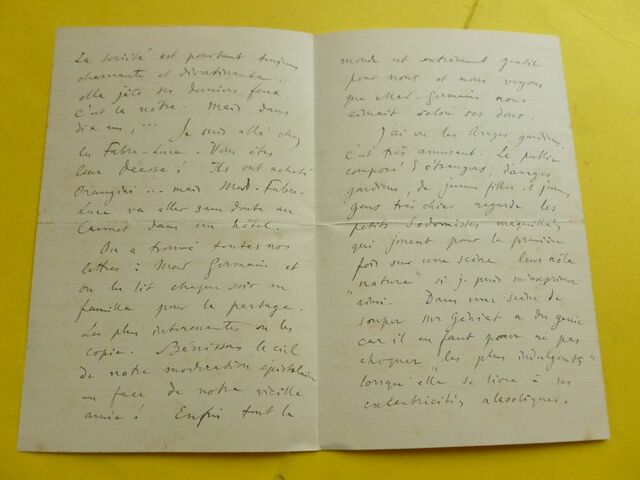 La société est pourtant toujours
charmante et divertissante.
elle jette ses derniers feux
c'est la nôtre. Mais dans
dix ans, ... Je suis allé chez
les Fabre-Luce. Vous êtes
leur Déesse ! Ils ont acheté
Orangini ... mais Mad. Fabre-
Luce va aller sans doute au
Cannet dans un hôtel.
On a trouvé toutes nos
lettres à Mad Germain et
on les lit chaque soir en
famille pour le partage.
Les plus interessantes on les
copie. Bénissons le ciel
de notre modération épistolaire
en face de notre vieille
amie ! Enfin tout le
monde est extrêment gentil
pour nous et nous voyons
que Mad. Germain nous
aimait selon ses dons.
J'ai vu les Anges gardiens.
c'est très amusant. Le public
composé d'étrangers, d'anges
gardiens, de jeunes filles et jeunes
gens très chics regarde les
petits Sodomistes maquillés
qui jouent pour la première
fois sur une scène leur rôle
"nature" si je puis m'exprimer
ainsi. Dans une scène de
souper Mr Géniat a du genie
car il en faut pour ne pas
choquer "les plus indulgents"
lorsqu'elle se livre à ses
excentricités alcooliques.